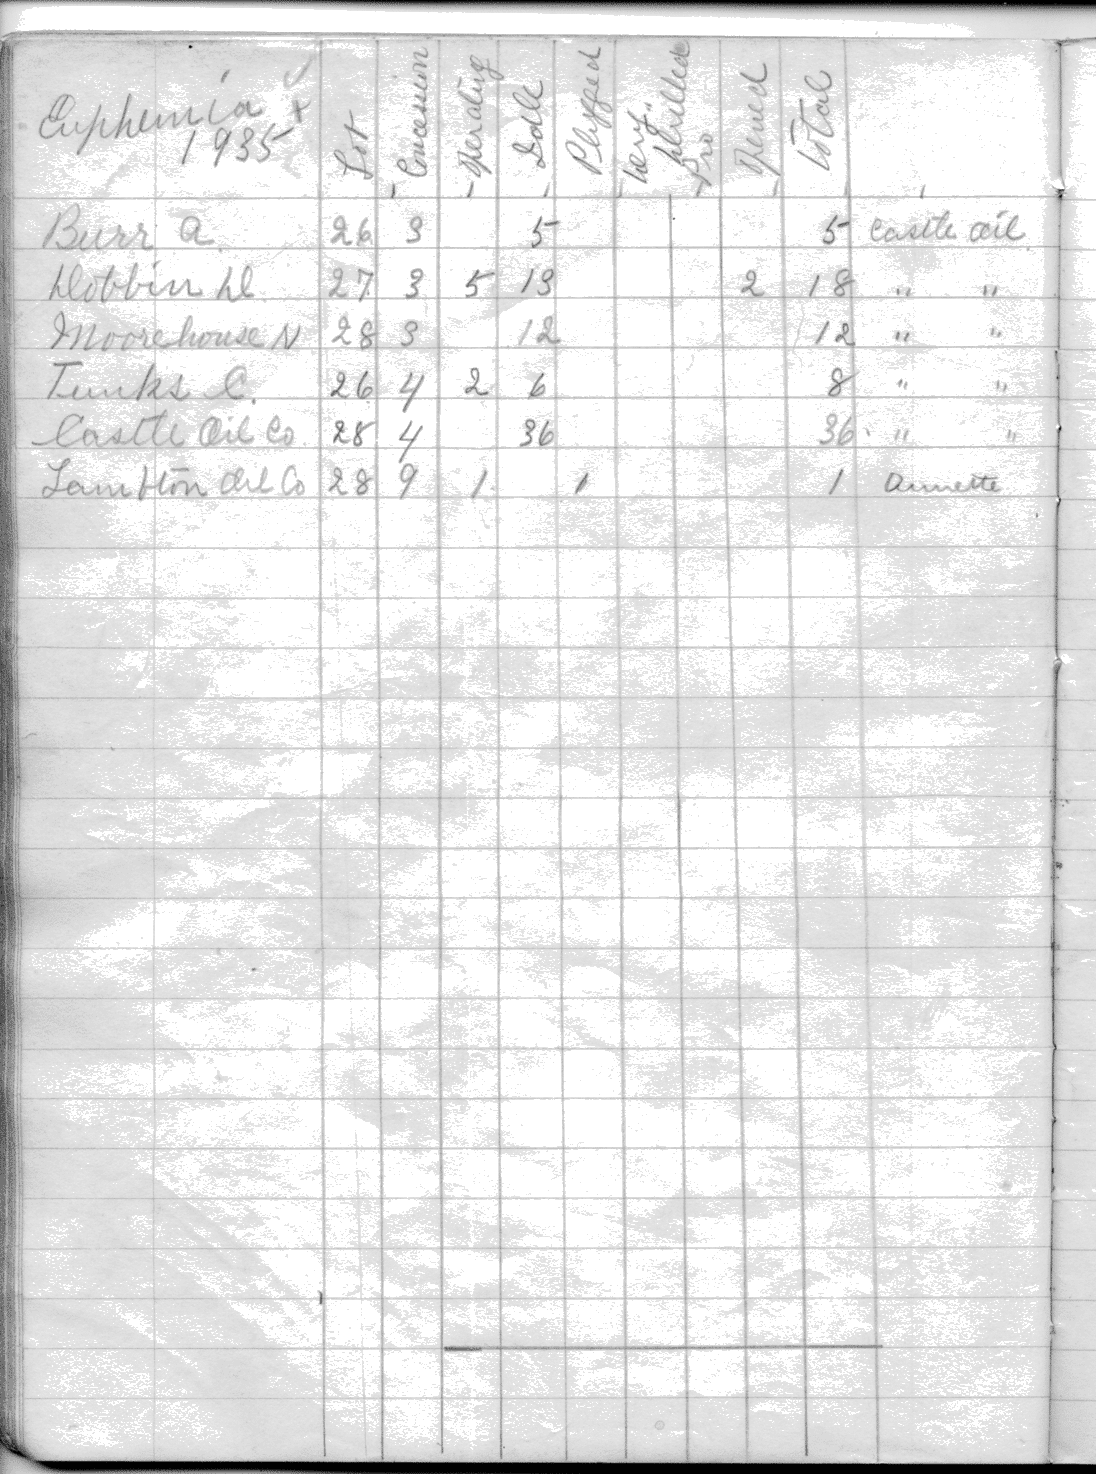 Euphemia
1935
Lot Concession Operating Idle Plugged Drilled Pro Opened Total
Burr A. 26 3 5 5 Castle Oil
Dobbin D. 27 3 5 13 2 18 " "
Moorehouse N 28 3 12 12 " "
Tunks C. 26 4 2 6 8 " "
Castle Oil Co 28 4 36 36 " "
Lambton Oil Co 28 9 1 1 1 Annette